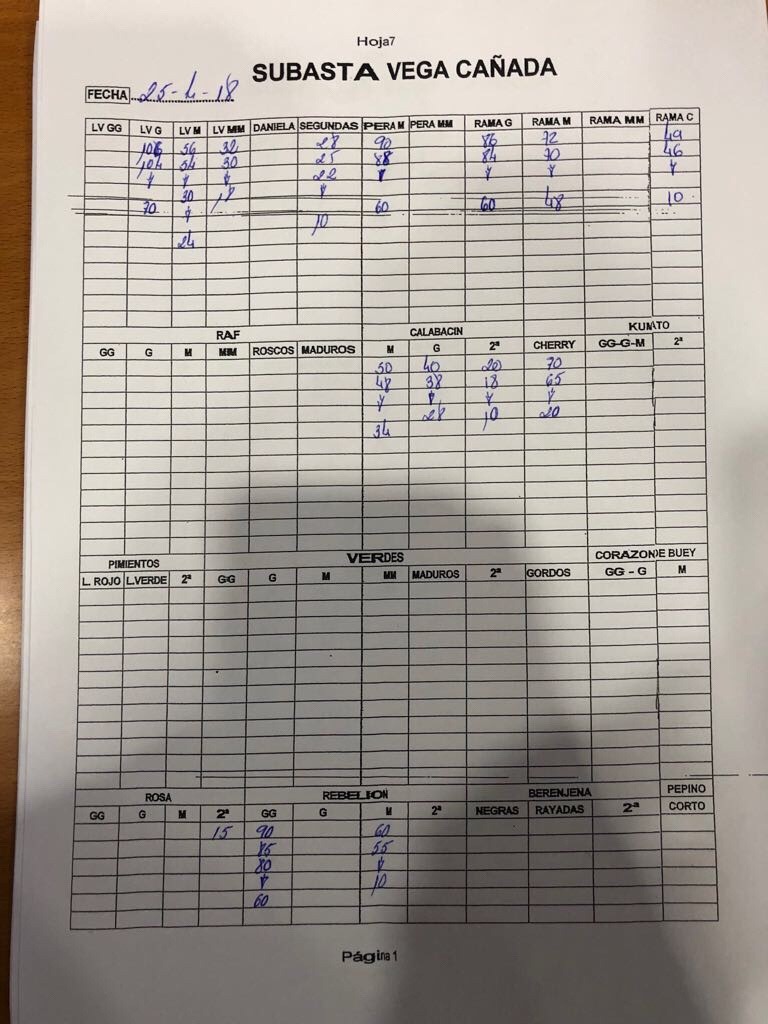 Hoja7
SUBASTA VEGA CAÑADA
FECHA 25-4-18
LV GG LV G LV M LV MM DANIELA SEGUNDAS PERA M PERA MM RAMA G RAMA M RAMA MM RAMA C
106 56 32 28 90 86 72 49
104 54 30 25 88 84 70 46
22
30 18
70 60 60 48 10
10
24
RAF CALABACIN KUMATO
GG G M MM ROSCOS MADUROS M G 2ª CHERRY GG-G-M 2ª
50 40 20 70
48 38 18 65
28 10 20
34
PIMIENTOS VERDES CORAZON DE BUEY
L. ROJO L.VERDE 2ª GG G M MM MADUROS 2ª GORDOS GG - G M
ROSA REBELION BERENJENA PEPINO
GG G M 2ª GG G M 2ª NEGRAS RAYADAS 2ª CORTO
15 90 60
85 55
80
10
60
Página 1